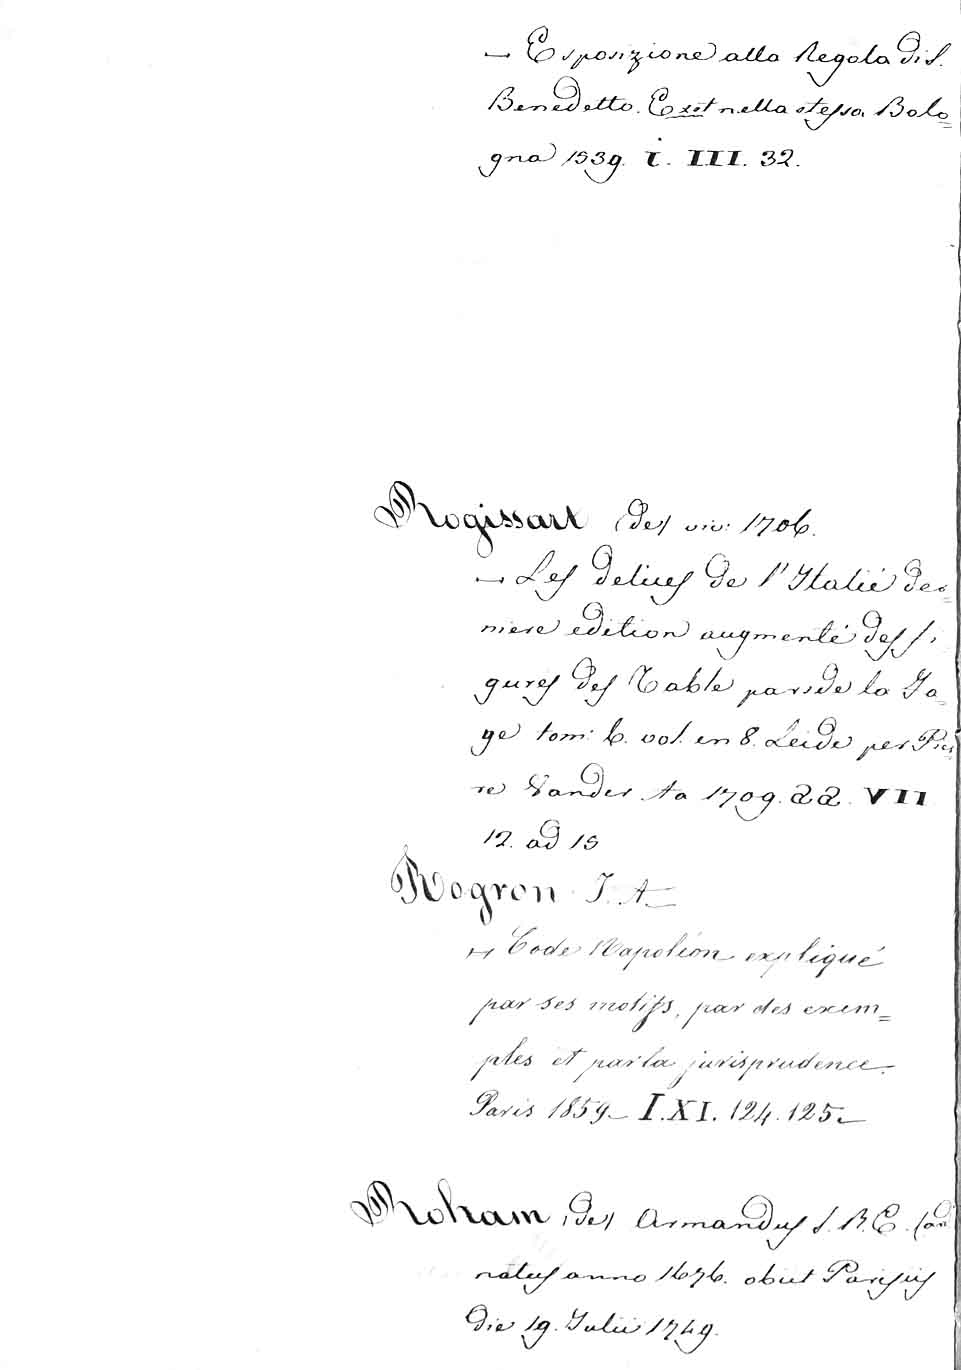 — Esposizione alla Regola di S.
Benedetto. Exst nella stessa. Bolo=
gna 1539. i. III. 32.
Rogissart (de) viv: 1706.
— Les delices de l'Italié der=
niere edition augmenté des fi
gures des Table par de la Ja=
ge tom: 6. vol. en 8. Leide per Pier=
re Vander Aa 1709. aa. VII
12. ad 15
Rogron J. A.
— Code Napoléon expliqué
par ses motifs, par des exem=
ples et par la jurisprudence.
Paris 1859 I. XI. 124. 125.
Roham (de) Armandus S. R. E. Card
natus anno 1676. obiit Parisiis
die 19. Julii 1749.